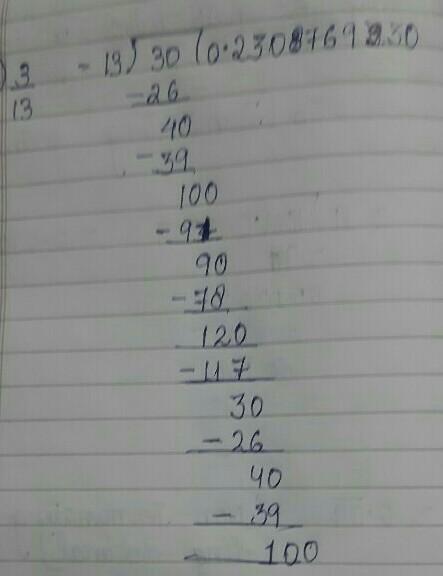 ) 3/13 - 13) 30 (0.230769230
-26
40
-39
100
-91
90
-78
120
-117
30
-26
40
-39
100